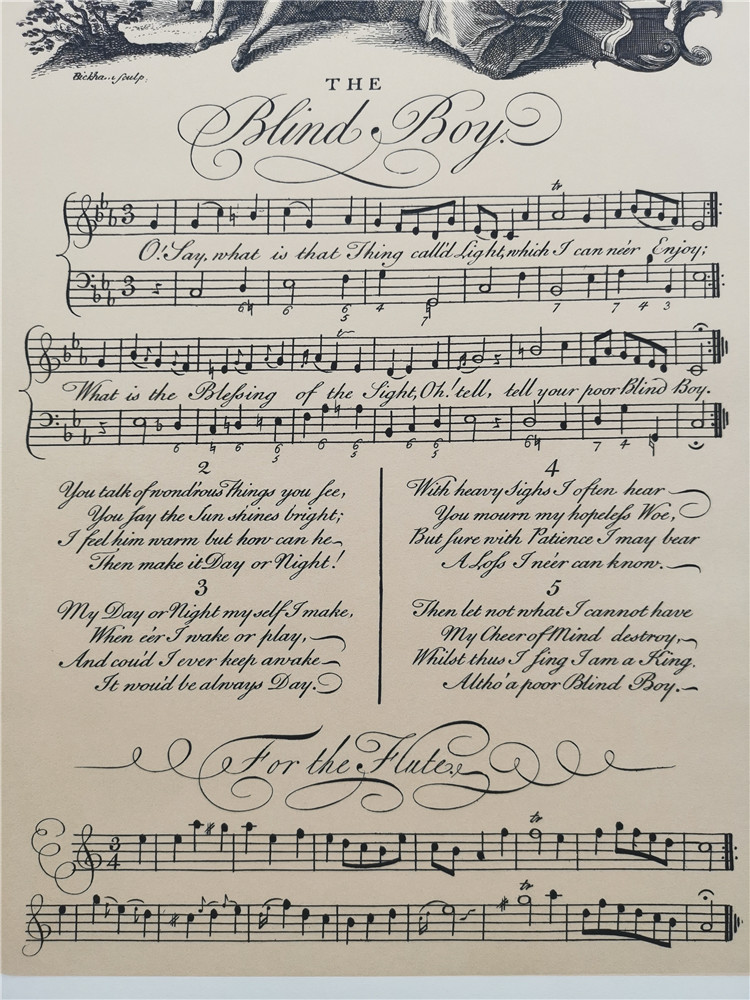 Bickham sculp.
THE
Blind Boy.
O! Say, what is that Thing call'd Light, which I can ne'er Enjoy;
What is the Blessing of the Sight, Oh! tell, tell your poor Blind Boy.
2
You talk of wond'rous Things you see,
You say the Sun shines bright;
I feel him warm but how can he
Then make it Day or Night!
3
My Day or Night my self I make,
When e'er I wake or play,
And cou'd I ever keep awake
It wou'd be always Day.
4
With heavy Sighs I often hear
You mourn my hopeless Woe,
But sure with Patience I may bear
A Loss I ne'er can know.
5
Then let not what I cannot have
My Cheer of Mind destroy,
Whilst thus I sing I am a King.
Altho' a poor Blind Boy.
For the Flute.